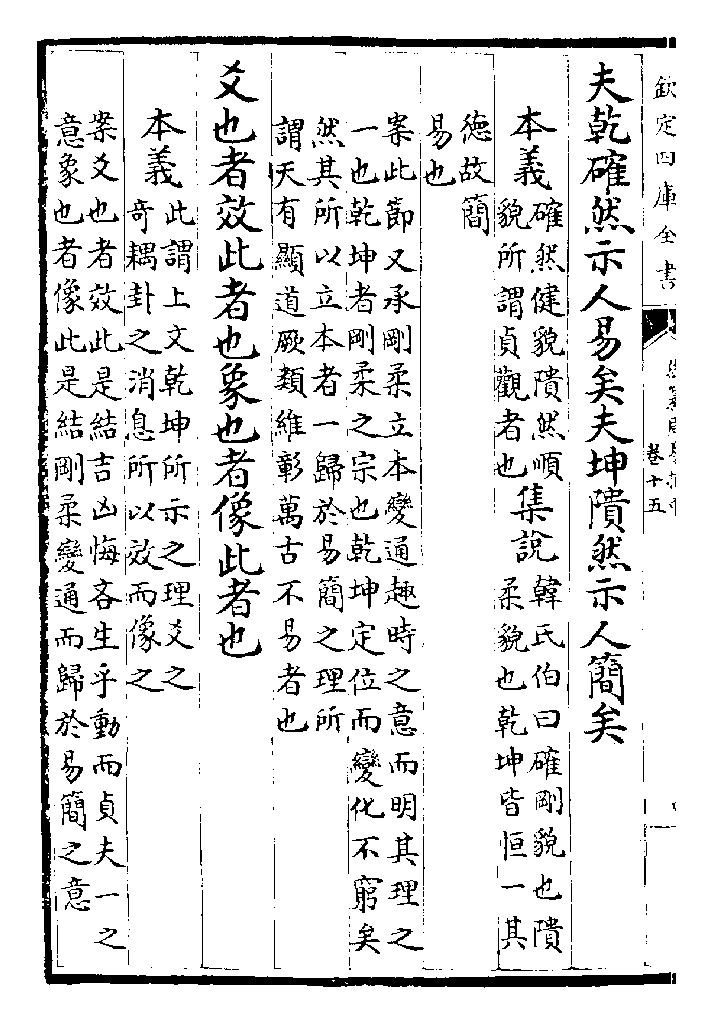 欽定四庫全書
卷十五
夫乾確然示人易矣夫坤隤然示人簡矣
本義
確然健貌隤然順
貌所謂貞觀者也
集說
韓氏伯曰確剛貌也隤
柔貌也乾坤皆恒一其
德故簡
易也
案此節又承剛柔立本變通趣時之意而明其理之
一也乾坤者剛柔之宗也乾坤定位而變化不窮矣
然其所以立本者一歸於易簡之理所
謂天有顯道厥類維彰萬古不易者也
爻也者效此者也象也者像此者也
本義
此謂上文乾坤所示之理爻之
奇耦卦之消息所以效而像之
案爻也者效此是結吉凶悔吝生乎動而貞夫一之
意象也者像此是結剛柔變通而歸於易簡之意